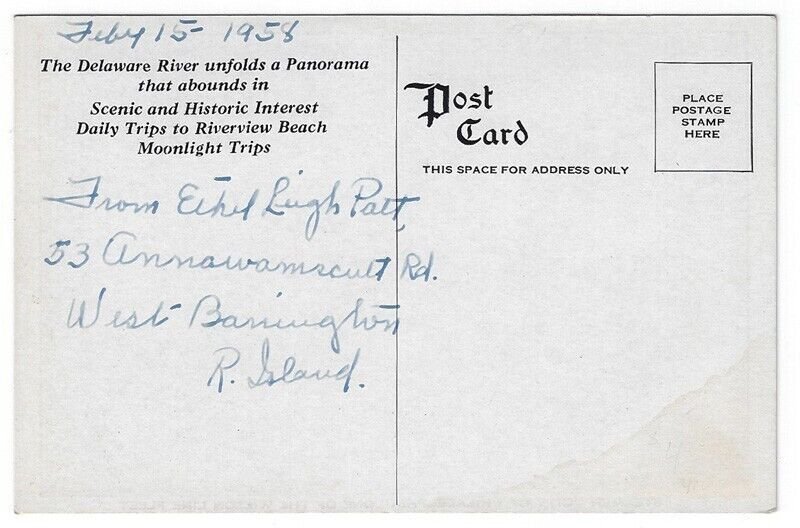 Feby 15 - 1958
The Delaware River unfolds a Panorama
that abounds in
Scenic and Historic Interest
Daily Trips to Riverview Beach
Moonlight Trips
From Ethel Leigh Patt,
53 Annawamscutt Rd.
West Barrington
R. Island.
Post
Card
THIS SPACE FOR ADDRESS ONLY
PLACE
POSTAGE
STAMP
HERE